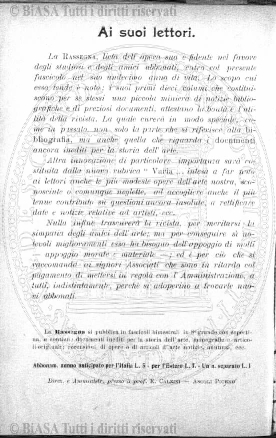 © BIASA Tutti i diritti riservati
Ai suoi lettori.
LA RASSEGNA, lieta dell'opera sua e fidente nel favore
degli studiosi e degli amici abbonati, entra col presente
fascicolo nel suo undecimo anno di vita. Lo scopo cui
essa tende è noto; i suoi primi dieci volumi che costitui-
scono per se stessi una piccola miniera di notizie biblio-
grafiche e di preziosi documenti, attestano la bontà e l'uti-
lità della rivista. La quale curerà in modo speciale, co-
me in passato, non solo la parte che si riferisce alla bi-
bliografia, ma anche quella che riguarda i documenti
ancora inediti per la storia dell'arte.
Altra innovazione di particolare importanza sarà co-
stituita dalla nuova rubrica "Varia" intesa a far noto
ai lettori anche le più modeste opere dell'arte nostra, sco-
nosciute o comunque neglette, ed accogliere anche il più
lieve contributo su questioni ancora insolute, a rettificare
date e notizie relative ad artisti, ecc.
Nulla infine trascurerà la rivista, per meritarsi la
simpatia degli amici dell'arte; ma per conseguire sì no-
tevoli miglioramenti essa ha bisogno dell'appoggio di molti
— appoggio morale e materiale —; ed è per ciò che si
raccomanda ai signori Associati che sono in ritardo col
pagamento di mettersi in regola con l'Amministrazione, a
tutti, indistintamente, perchè si adoperino a trovarle nuo-
vi abbonati.
La Rassegna si pubblica in fascicoli bimestrali in 8° grande con coperti-
na, e contiene documenti inediti per la storia dell'arte,
originali; recensioni di opere o di articoli d'arte ecc.
Abbonam. annuo anticipato per l'Italia L. 5 - per l'Estero L. 7. - Un n. separato L. 1
Direz. e Amministr. presso il prof. E. CALZINI — ASCOLI PICENO
© BIASA Tutti i diritti riservati